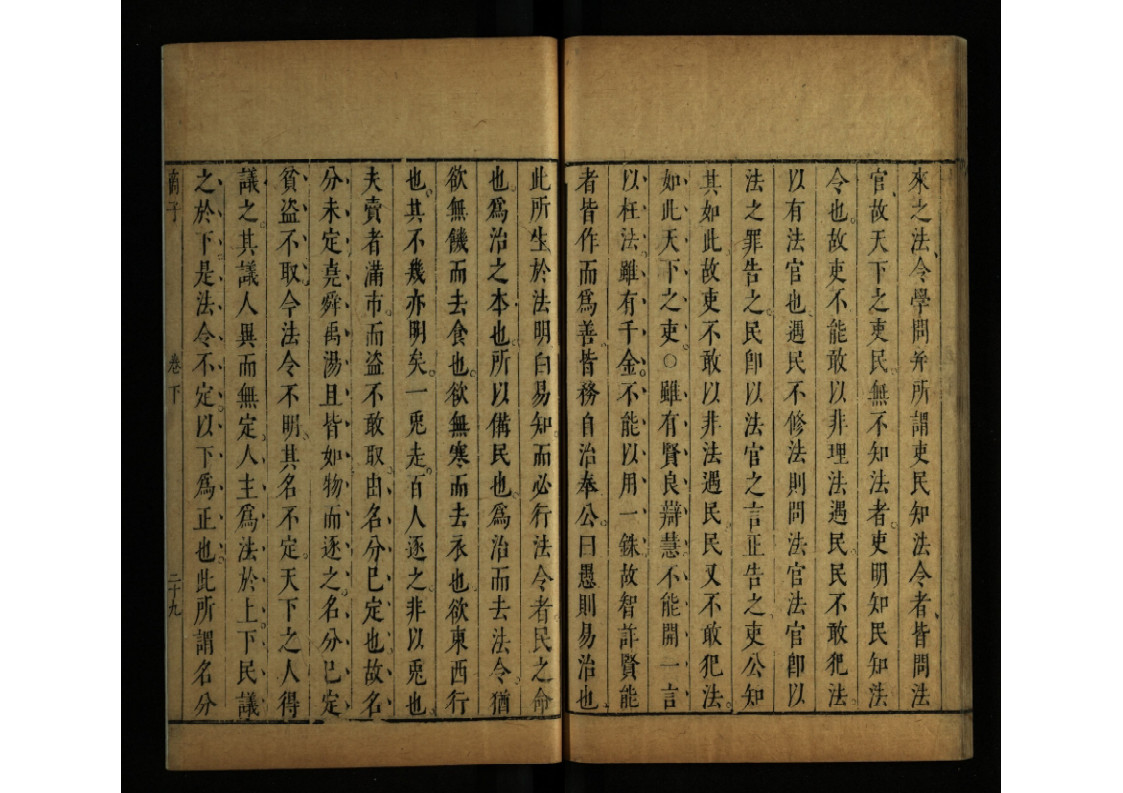 來之法令學問并所謂吏民知法令者皆問法
官故天下之吏民無不知法者吏明知民知法
令也故吏不能敢以非理法遇民民不敢犯法
以有法官也遇民不修法則問法官法官卽以
法之罪告之民卽以法官之言正告之吏公知
其如此故吏不敢以非法遇民民又不敢犯法
如此天下之吏〇雖有賢良辯慧不能開一言
以枉法雖有千金不能以用一銖故智詐賢能
者皆作而爲善皆務自治奉公曰愚則易治也
此所生於法明白易知而必行法令者民之命
也爲治之本也所以備民也爲治而去法令猶
欲無饑而去食也欲無寒而去衣也欲東西行
也其不幾亦明矣一兎走百人逐之非以兎也
夫賣者滿市而盜不敢取由名分已定也故名
分未定堯舜禹湯且皆如物而逐之名分已定
貧盜不取今法令不明其名不定天下之人得
議之其議人異而無定人主爲法於上下民議
之於下是法令不定以下爲正也此所謂名分
商子 卷下 二十九